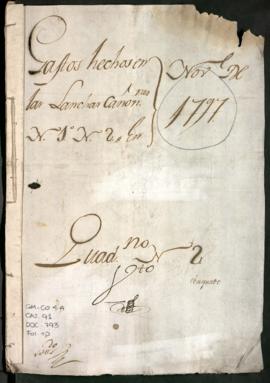 Gastos hechos en
las Lanchas Cañon.ras
N. 1º N. 2. En
Nov.e de
1797
Quad.no N 2
GM-CO 4A
CAJ. 91
DOC. 793
Fol. 12